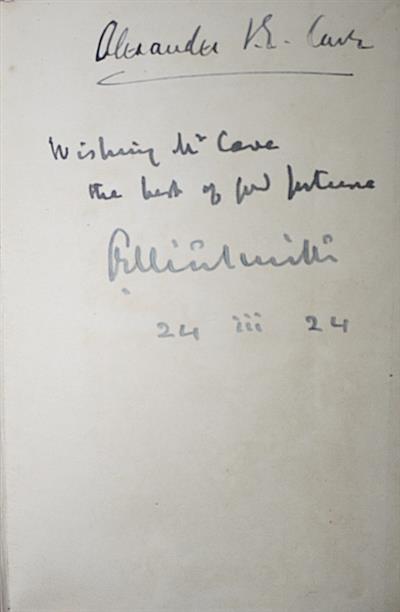 Alexander J.E. Cave
Wishing Mr Cave
the best of good fortune
G. Elliot Smith
24 iii 24